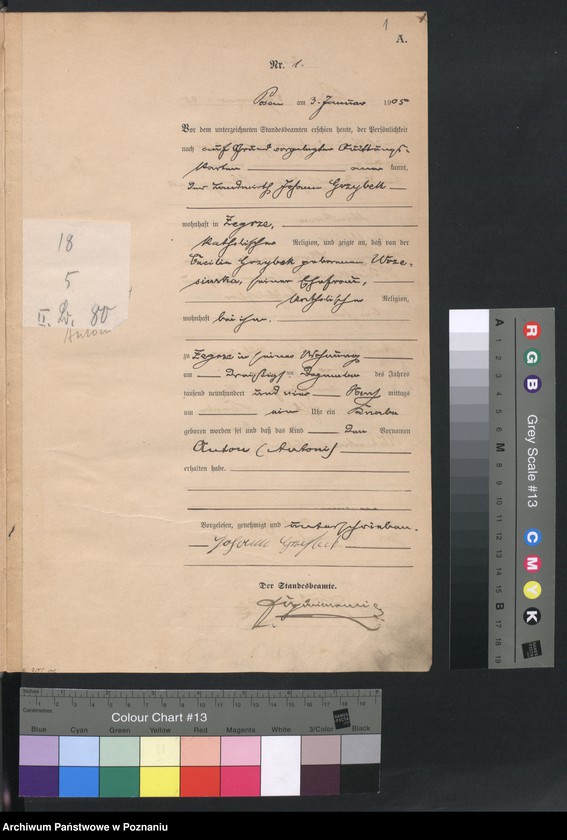 1
A.
Nr. 1.
Posen am 3. Januar 1905
Vor dem unterzeichneten Standesbeamten erschien heute, der Persönlichkeit
nach auf Grund vorgelegter Quittungs-
karten kannt,
der Landwirth Johann Grzybek
wohnhaft in Zegrze,
katholischer Religion, und zeigte an, daß von der
Cecilia Grzybek geborenen
seiner Ehefrau,
katholischer Religion,
wohnhaft bei ihm,
zu Zegrze in seiner Wohnung
am dreißigsten Dezember des Jahres
tausend neunhundert und vier Nachmittags
um ein Uhr ein Knabe
geboren worden sei und daß das Kind den Vornamen
Anton (Antoni)
erhalten habe.
Vorgelesen, genehmigt und unterschrieben.
Johann Grzybek
Der Standesbeamte.
18
5
80
Anton
Inches
Centimetres
Colour Chart #13
Blue Cyan Green Yellow Red Magenta White 3/Color Black
R G B Grey Scale #13 C M Y K
A 1 2 3 4 5 6 M 8 9 10 11 12 13 14 15 B 17 18 19
Archiwum Państwowe w Poznaniu